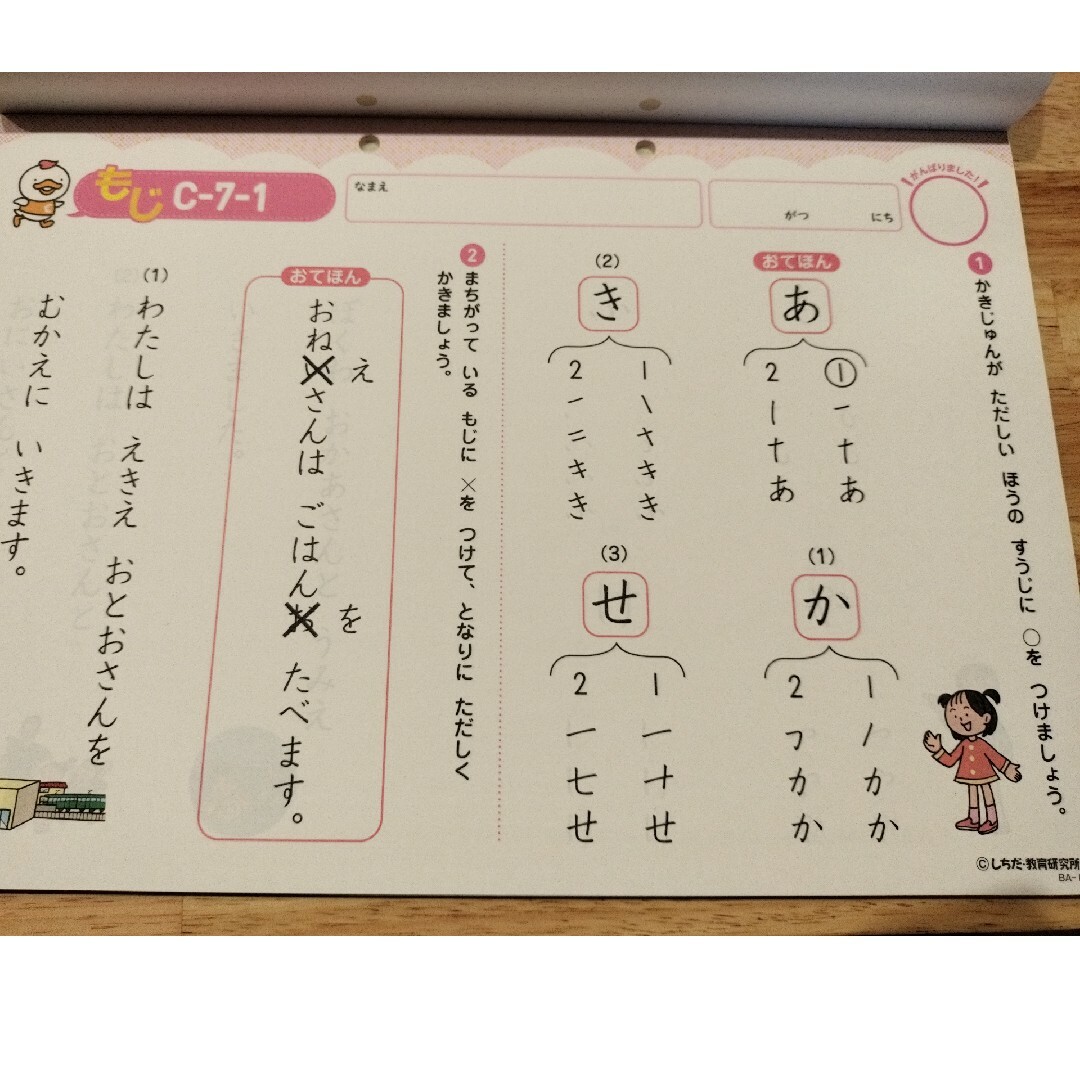 もじ C-7-1
なまえ
がつ にち
がんばりました!
1 かきじゅんが ただしい ほうの すうじに ○を つけましょう。
おてほん
あ
1 一 十 あ
2 丨 十 あ
(1)
か
1 ノ カ か
2 フ カ か
(2)
き
1 \ キ き
2 一 二 キ き
(3)
せ
1 一 十 せ
2 一 七 せ
2 まちがって いる もじに ×を つけて、となりに ただしく
かきましょう。
おてほん
え を
おね さんは ごはん たべます。
(1)
わたしは えきえ おとおさんを
むかえに いきます。
©しちだ・教育研究所